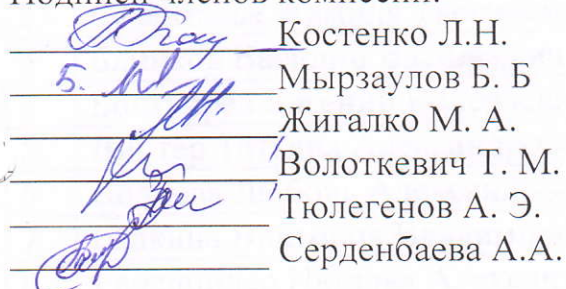 Подписи членов комиссии:
Костенко Л.Н.
Мырзаулов Б. Б
Жигалко М. А.
Волоткевич Т. М.
Тюлегенов А. Э.
Серденбаева А.А.